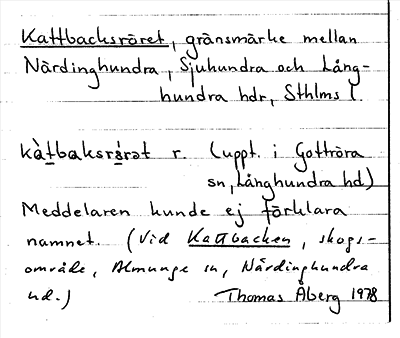 Kattbacksröret, gränsmärke mellan
Närdinghundra, Sjuhundra och Lång-
hundra hdr, Sthlms l.
kàt̲baksrś̲rət r. (uppt. i Gottröra
sn, Långhundra hd)
Meddelaren kunde ej förklara
namnet. (Vid Kattbacken, skogs-
område, Almunge sn, Närdinghundra
hd.) Thomas Åberg 1978